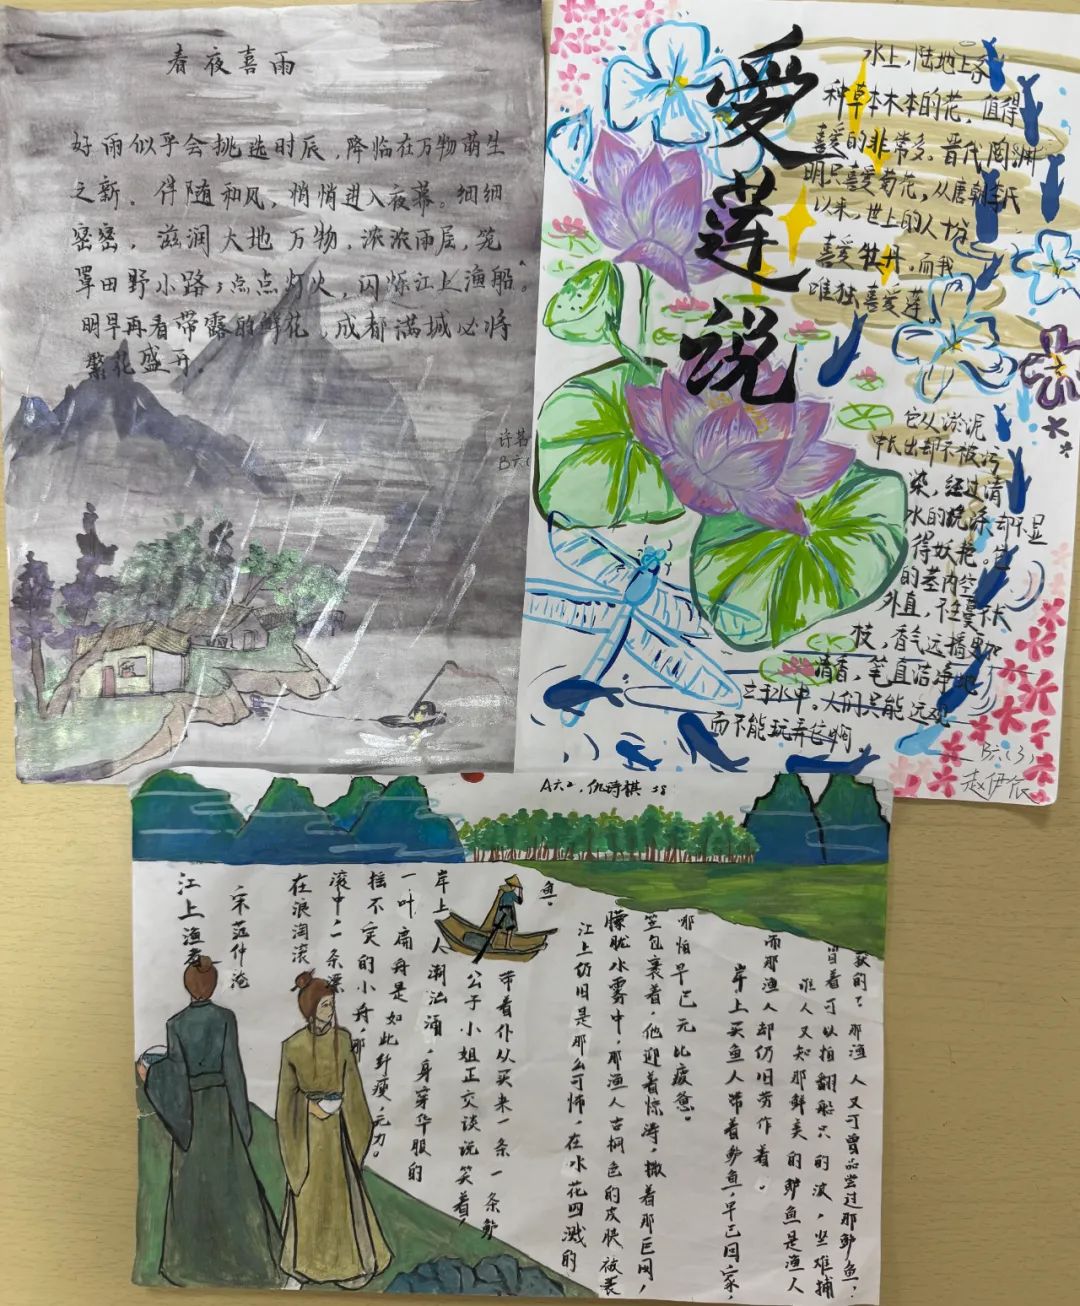 春夜喜雨
好雨似乎会挑选时辰，降临在万物萌生
之新。伴随和风，悄悄进入夜幕。细细
密密，滋润大地万物，浓浓雨层，笼
罩田野小路；点点灯火，闪烁江上渔船。
明早再看带露的鲜花，成都满城必将
繁花盛开。
许若
B六(
爱莲说
水上，陆地上各
种草本木本的花，值得
喜爱的非常多。晋代陶渊
明只喜爱菊花，从唐朝李氏
以来，世上的人十分
喜爱牡丹，而我
唯独喜爱莲
它从淤泥
中长出却不被污
染，经过清
水的洗涤却不显
得妖艳。它
的茎内空
外直，不生蔓不长
枝，香气远播更加
清香，笔直洁净地
立于水中。人们只能远观
而不能玩弄它啊。
B六(3)
赵伊依
A六2，仇诗棋 38
江上渔者
宋 范仲淹
在浪淘滚
滚中一条漂
摇不定的小舟，那
一叶扁舟是如此纤瘦，无力。
岸上人潮汹涌，身穿华服的
公子小姐正交谈说笑着，
带着仆从买来一条一条鲈
鱼。
江上仍旧是那么可怖，在水花四溅的
朦胧水雾中，那渔人古铜色的皮肤被蓑
笠包裹着，他迎着惊涛，撒着那巨网，
哪怕早已无比疲惫。
岸上买鱼人带着鲈鱼，早已回家，
而那渔人却仍旧劳作着。
谁人又知那鲜美的鲈鱼是渔人
冒着可以拍翻船只的波，坐难捕
获的？那渔人又可曾品尝过那鲈鱼，